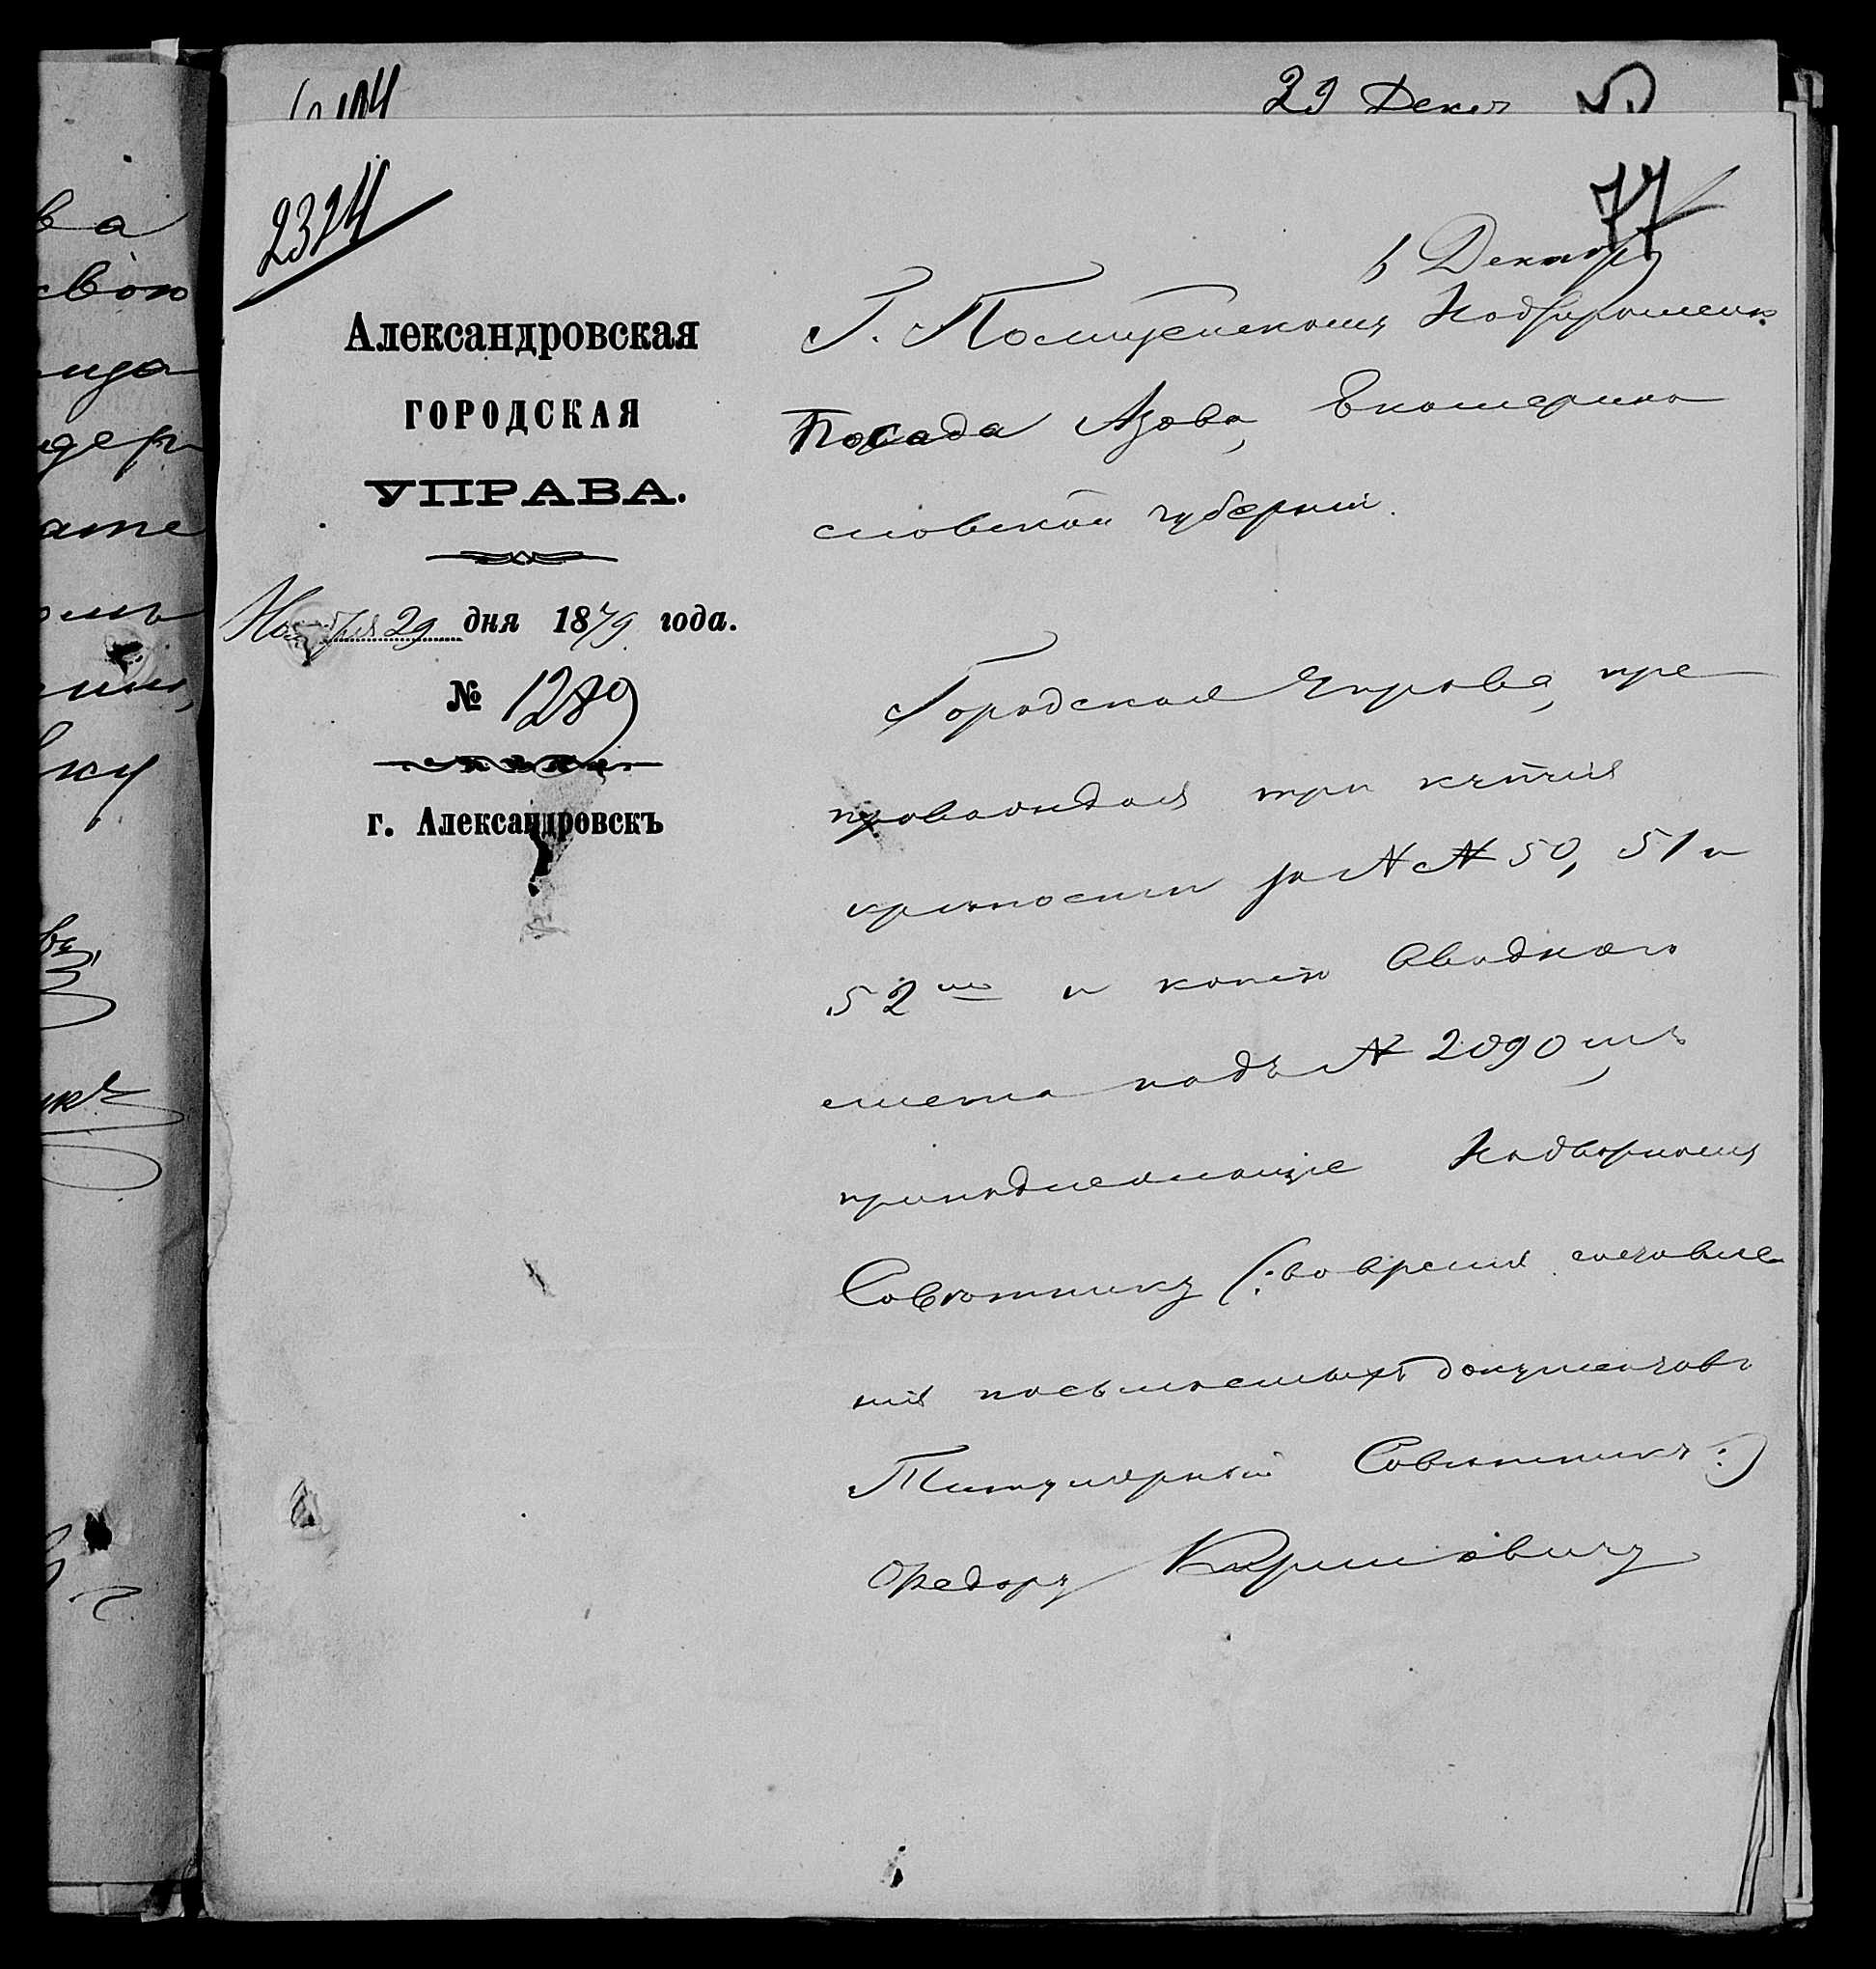 29 Декаб
77
2324
6 Декабря
Александровская
ГОРОДСКАЯ
УПРАВА.
Ноября 29 дня 1879 года.
№ 1289
г. Александровскъ
Г. Полицейскому Надзирателю
Посада Азова, Екатерино
славской губерніи.
Городская Управа, пре
провождая три купчія
крѣпости за №№ 50, 51 и
52 мъ и копію Сводного
акта подъ № 2090 мъ,
принадлежащіе Надворному
Совѣтнику (: во время составле
нія посылаемыхъ документовъ
Титулярный Совѣтникъ :)
Федору